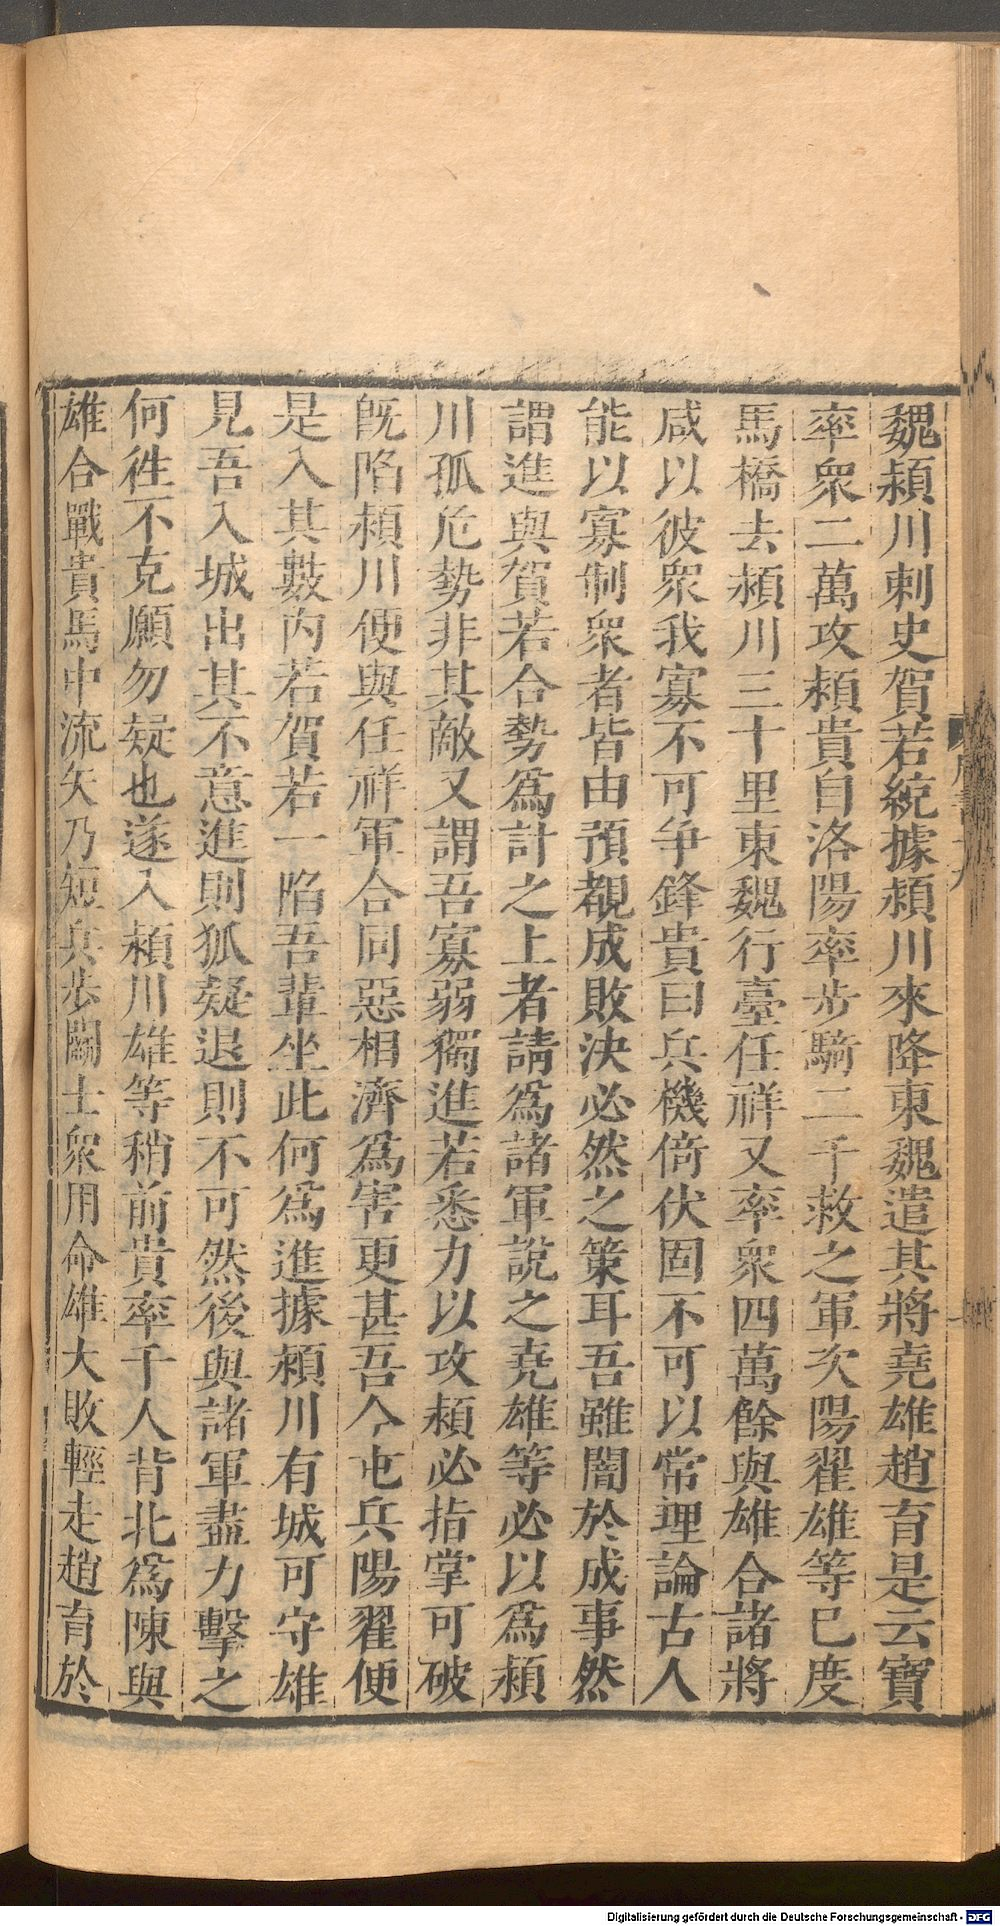 魏頴川刺史賀若統據頴川來降東魏遣其將堯雄趙育是云寶
率衆二萬攻頴貴自洛陽率步騎二千救之軍次陽翟雄等已度
馬橋去頴川三十里東魏行臺任祥又率衆四萬餘與雄合諸將
咸以彼衆我寡不可爭鋒貴曰兵機倚伏固不可以常理論古人
能以寡制衆者皆由預覩成敗決必然之策耳吾雖闇於成事然
謂進與賀若合勢爲計之上者請爲諸軍說之堯雄等必以爲頴
川孤危勢非其敵又謂吾寡弱獨進若悉力以攻頴必指掌可破
旣陷頴川便與任祥軍合同惡相濟爲害更甚吾今屯兵陽翟便
是入其數內若賀若一陷吾輩坐此何爲進據頴川有城可守雄
見吾入城出其不意進則狐疑退則不可然後與諸軍盡力擊之
何徃不克願勿疑也遂入頴川雄等稍前貴率千人背北爲陳與
雄合戰貴馬中流矢乃短兵步鬭士衆用命雄大敗輕走趙育於
Digitalisierung gefördert durch die Deutsche Forschungsgemeinschaft - DFG